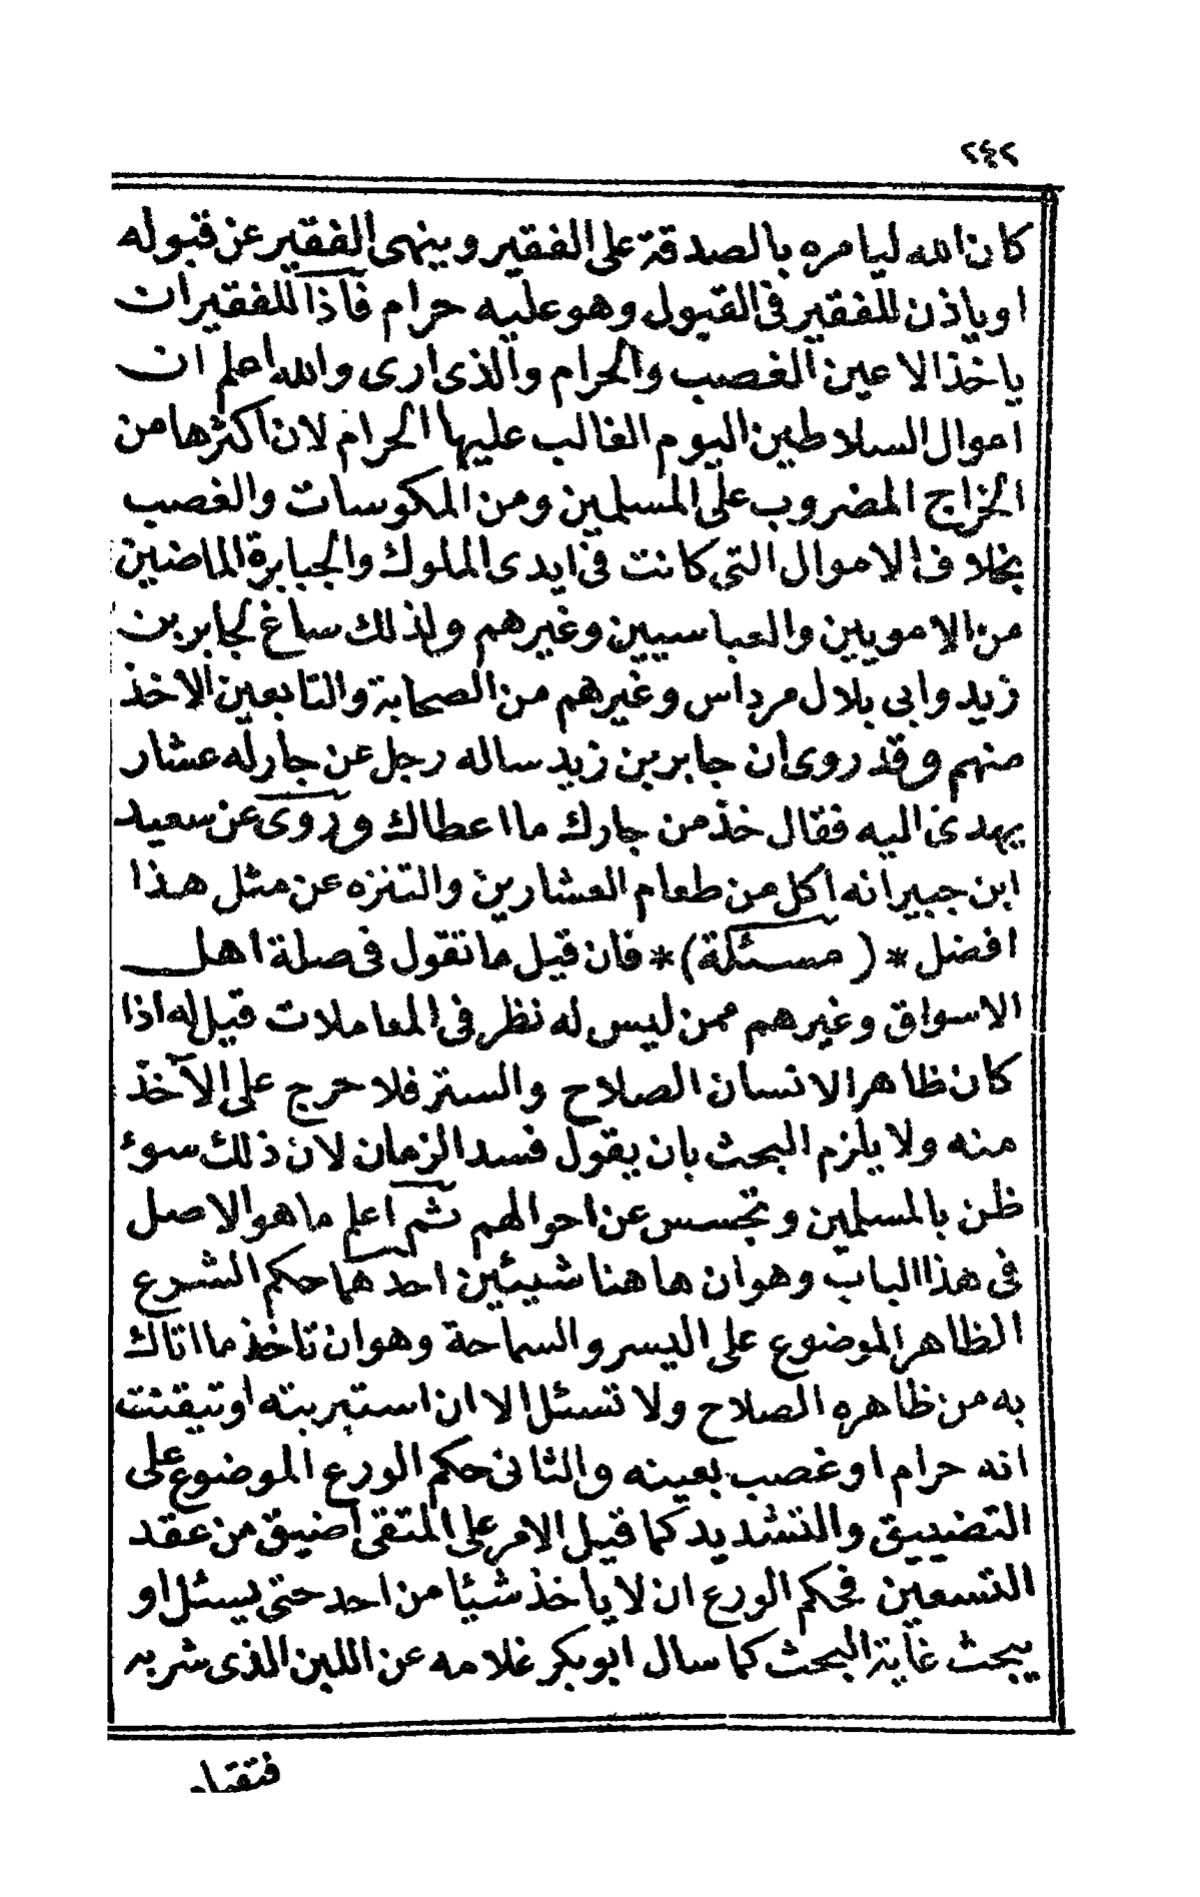 ٢٤٢
كان الله ليامره بالصدقة على الفقير وينهى الفقير عن قبوله
او ياذن للفقير فى القبول وهو عليه حرام فاذا للفقيران
ياخذ الا عين الغصب والحرام والذى ارى والله اعلم ان
اموال السلاطين اليوم الغالب عليها الحرام لان اكثرها من
الخراج المضروب على المسلمين ومن المكوسات والغصب
بخلاف الاموال التى كانت فى ايدى الملوك والجبابرة الماضين
من الامويين والعباسيين وغيرهم ولذلك ساغ لجابر بن
زيد وابى بلال مرداس وغيرهم من الصحابة والتابعين الاخذ
منهم وقد روى ان جابر بن زيد ساله رجل عن جار له عشار
يهدى اليه فقال خذ من جارك ما اعطاك وروى عن سعيد
ابن جبير انه اكل من طعام العشارين والتنزه عن مثل هذا
افضل * ( مسئلة ) * فان قيل ما تقول فى صلة اهل
الاسواق وغيرهم ممن ليس له نظر فى المعاملات قيل له اذا
كان ظاهر الانسان الصلاح والستر فلا حرج على الآخذ
منه ولا يلزم البحث بان يقول فسد الزمان لان ذلك سوء
ظن بالمسلمين وتجسس عن احوالهم ثم اعلم ما هو الاصل
فى هذا الباب وهو ان ها هنا شيئين احدهما حكم الشرع
الظاهر الموضوع على اليسر والسماحة وهو ان تاخذ ما اتاك
به من ظاهره الصلاح ولا تسئل الا ان استبربته او تيقنت
انه حرام او غصب بعينه والثانى حكم الورع الموضوع على
التضييق والتشديد كما قيل الامر على المتقى اضيق من عقد
التسعين فحكم الورع ان لا ياخذ شيئا من احد حتى يسئل او
يبحث غاية البحث كما سال ابو بكر غلامه عن اللبن الذى شربه
فتقيا